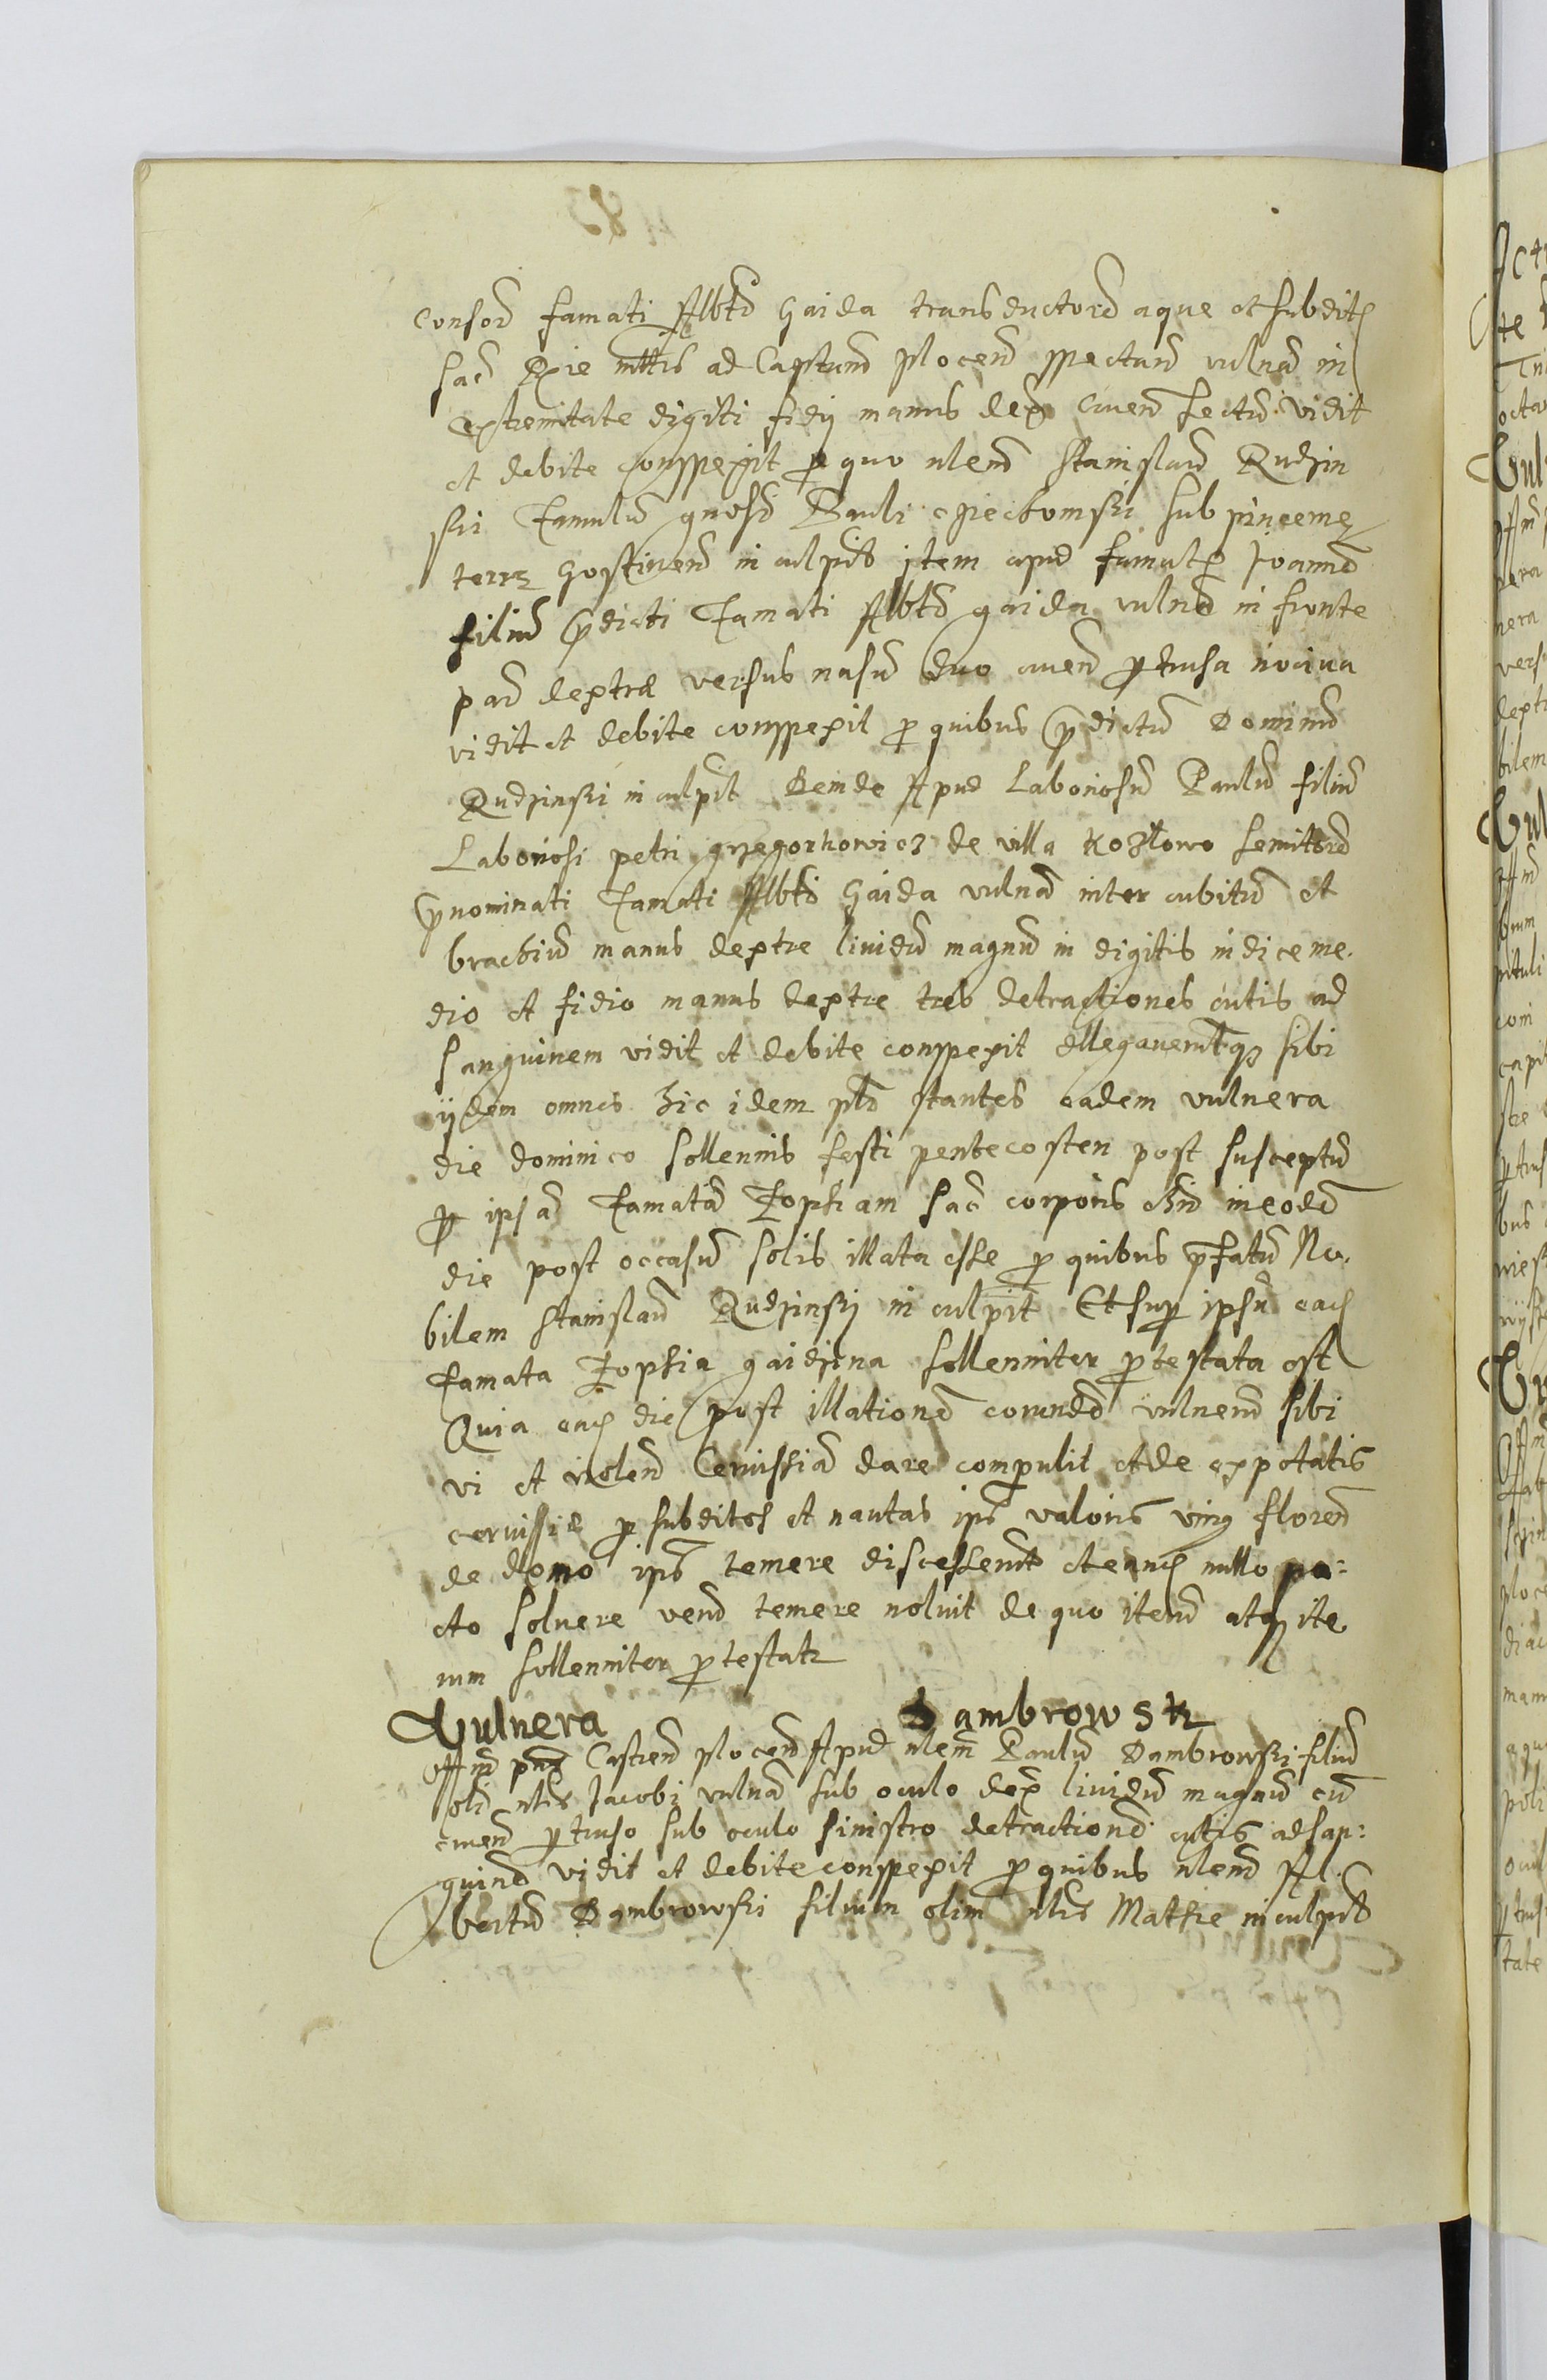 Consor famati Albti Gaida transductore aque et subdit
Sac Rgie mttis ad Capitum plocen spectan vulnus in
extremitate digiti fidij manus dex cruen sectu vidit
et debite conspexit p quo nlem Stanislaum Rudzin
ski famulu gnosi Pauli subpincerne
terre Gostinen inculpit item apud famat Joanne
filiu pdicti famati Albti gaida vulnus in fronte
par dextra versus nasu duo cruen ptrusa nociva
vidit et debite conspexit p quibus pdictu Dominu
Rudzinski inculpit Deinde Apud Laboriosu Paulu filiu
Laboriosi petri grzegorzowicz de villa Kozłowo servitore
pnominati famati Albti Gaida vulnus inter cubitu et
brachiu manus dextre lividu magnu in digitis indice me-
dio et fidio manus dextre tres detractiones cutis ad
Sanguinem vidit et debite conspexit allegaveruntq sibi
ijdem omnes hic idem pto stantes eadem vulnera
die dominico sollennis festi pentecosten post susceptu
p ipsa famata Zophiam Sac corporis chri in eode
die post occasu solis illata esse p quibus pfatu No-
bilem Stanislau Rudzinski inculpit Et sup ipsu ead
famata Zophia gaidzina sollenniter ptestata est
Quia ead die post illatione eorunde vulneru sibi
vi et violen Cervisia dare compulit et de expotatis
cervisie p subditos et nautas ips valoris ving floren
de domo ips temere discesserunt et eand nullo pa:
cto solvere vero temere noluit de quo iteru atq ite
rum sollenniter ptestatr
Vulnera Dambrowsk
Castren plocen Apud nlem Paulu Dambrowski filiu
oli nlis Jacobi vulnus sub oculo dex lividu magnu cu
cruen ptruso sub oculo sinistro detractione cutis ad san:
guine vidit et debite conspexit p quibus nlem Al-
bertu Dambrowski filium olim nlis Mathie inculpit